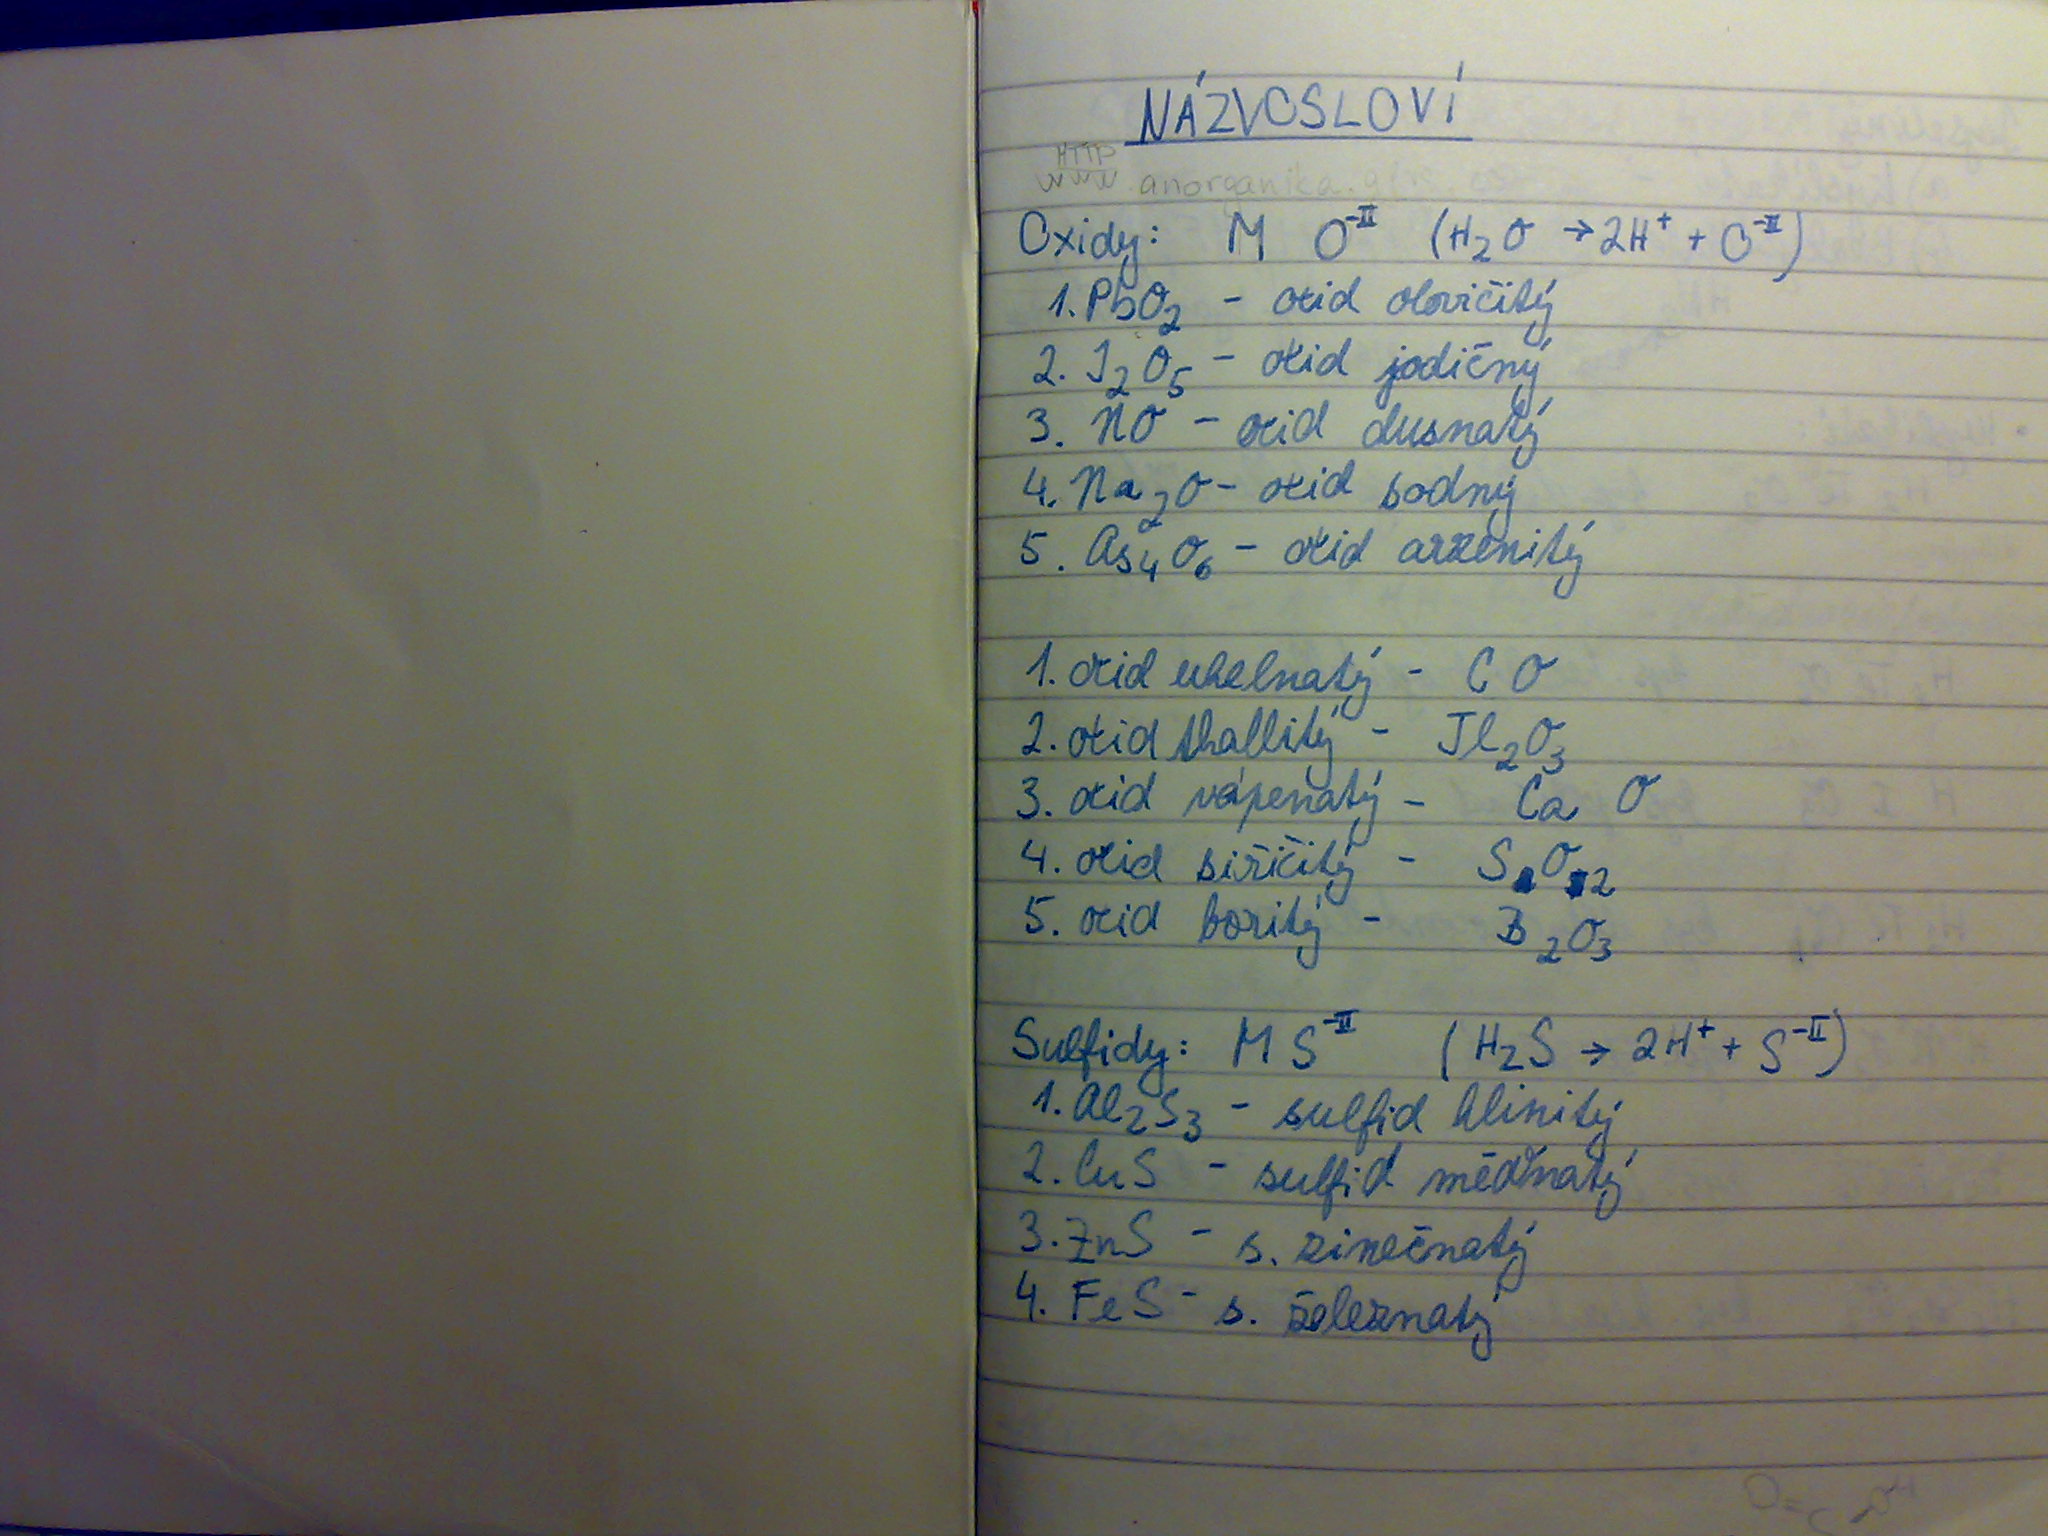 NÁZVOSLOVÍ
HTTP
www.anorganika.
Oxidy: M O⁻ᴵᴵ (H₂O → 2H⁺ + O⁻ᴵᴵ)
1. PbO₂ - oxid olovičitý
2. I₂O₅ - oxid jodičný
3. NO - oxid dusnatý
4. Na₂O - oxid sodný
5. As₄O₆ - oxid arzenitý
1. oxid uhelnatý - CO
2. oxid thallitý - Tl₂O₃
3. oxid vápenatý - Ca O
4. oxid siřičitý - S O₂
5. oxid boritý - B₂O₃
Sulfidy: M S⁻ᴵᴵ (H₂S → 2H⁺ + S⁻ᴵᴵ)
1. Al₂S₃ - sulfid hlinitý
2. CuS - sulfid měďnatý
3. ZnS - s. zinečnatý
4. FeS - s. železnatý